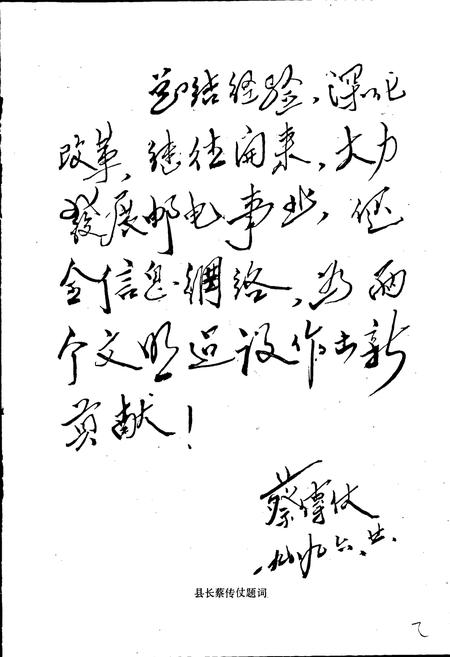 总结经验，深化
改革，继往开来，大力
發展邮电事业，健
全信息網络，为两
个文明建设作出新
贡献！
蔡傳仗
一九九〇.六.廿.
县长蔡传仗题词